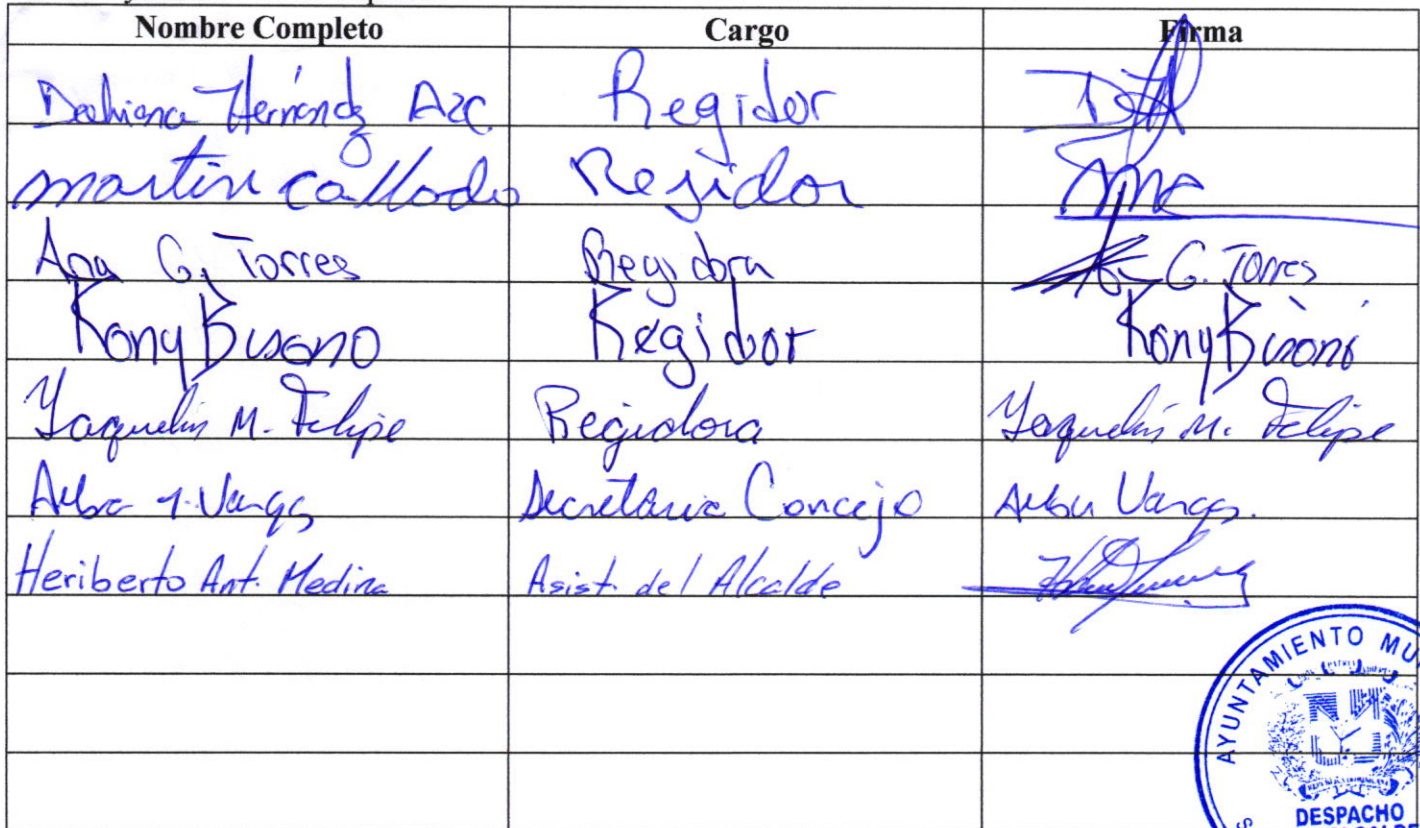 Nombre Completo Cargo Firma
Dahiana Hernández Azc. Regidor
martin collado Regidor
Ana G. Torres Regidora G. Torres
Rony Bisono Regidor Rony Bisonó
Yaquelin M. Felipe Regidora Yaquelin M. Felipe
Alba Y. Vargas Secretaria Concejo Alba Vargas.
Heriberto Ant. Medina Asist. del Alcalde
AYUNTAMIENTO MU
DESPACHO